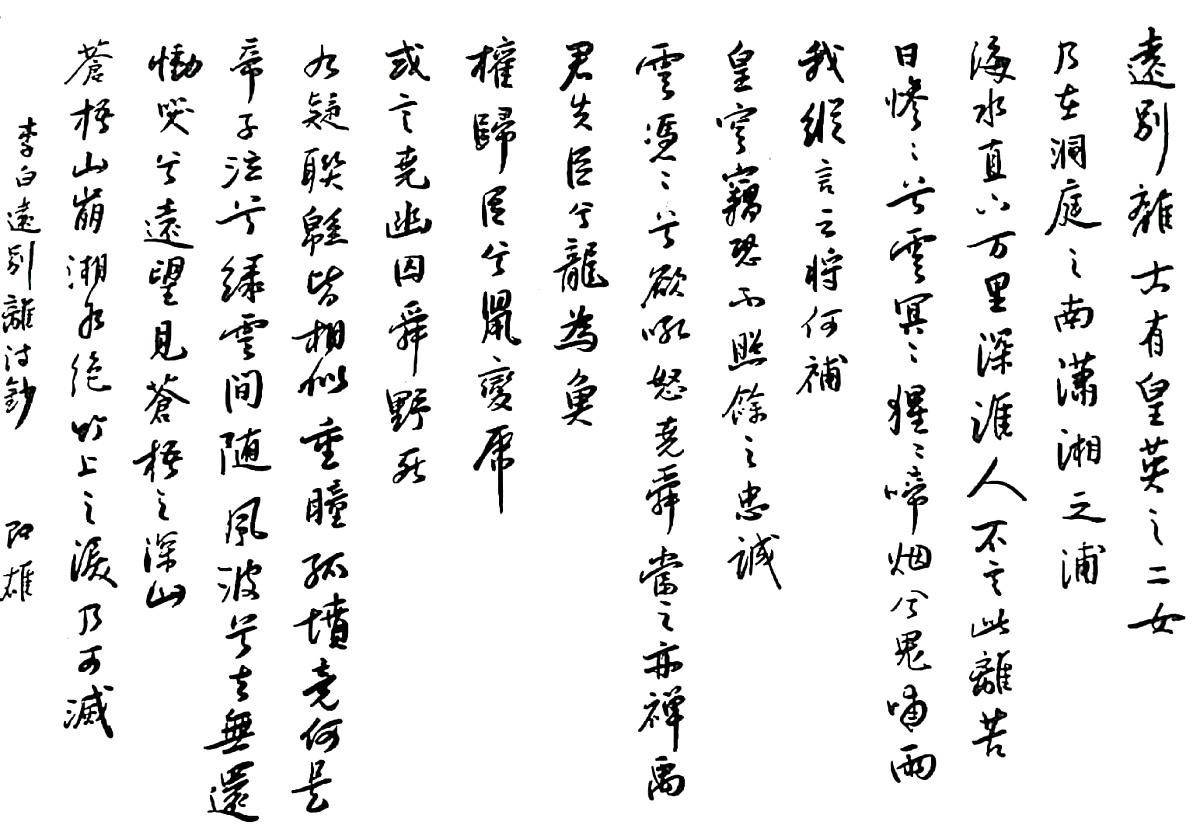 遠別離古有皇英之二女
乃在洞庭之南瀟湘之浦
海水直下万里深誰人不言此離苦
日慘〻兮雲冥〻猩〻啼烟兮鬼嘯雨
我縱言之將何補
皇穹竊恐不照餘之忠誠
雲憑〻兮欲吼怒堯舜當之亦禪禹
君失臣兮龍為魚
權歸臣兮鼠變虎
或言堯幽囚舜野死
九疑聯緜皆相似重瞳孤墳竟何是
帝子泣兮綠雲間随風波兮去無還
慟哭兮遠望見蒼梧之深山
蒼梧山崩湘水絕竹上之淚乃可滅
李白遠別離詩鈔 雄